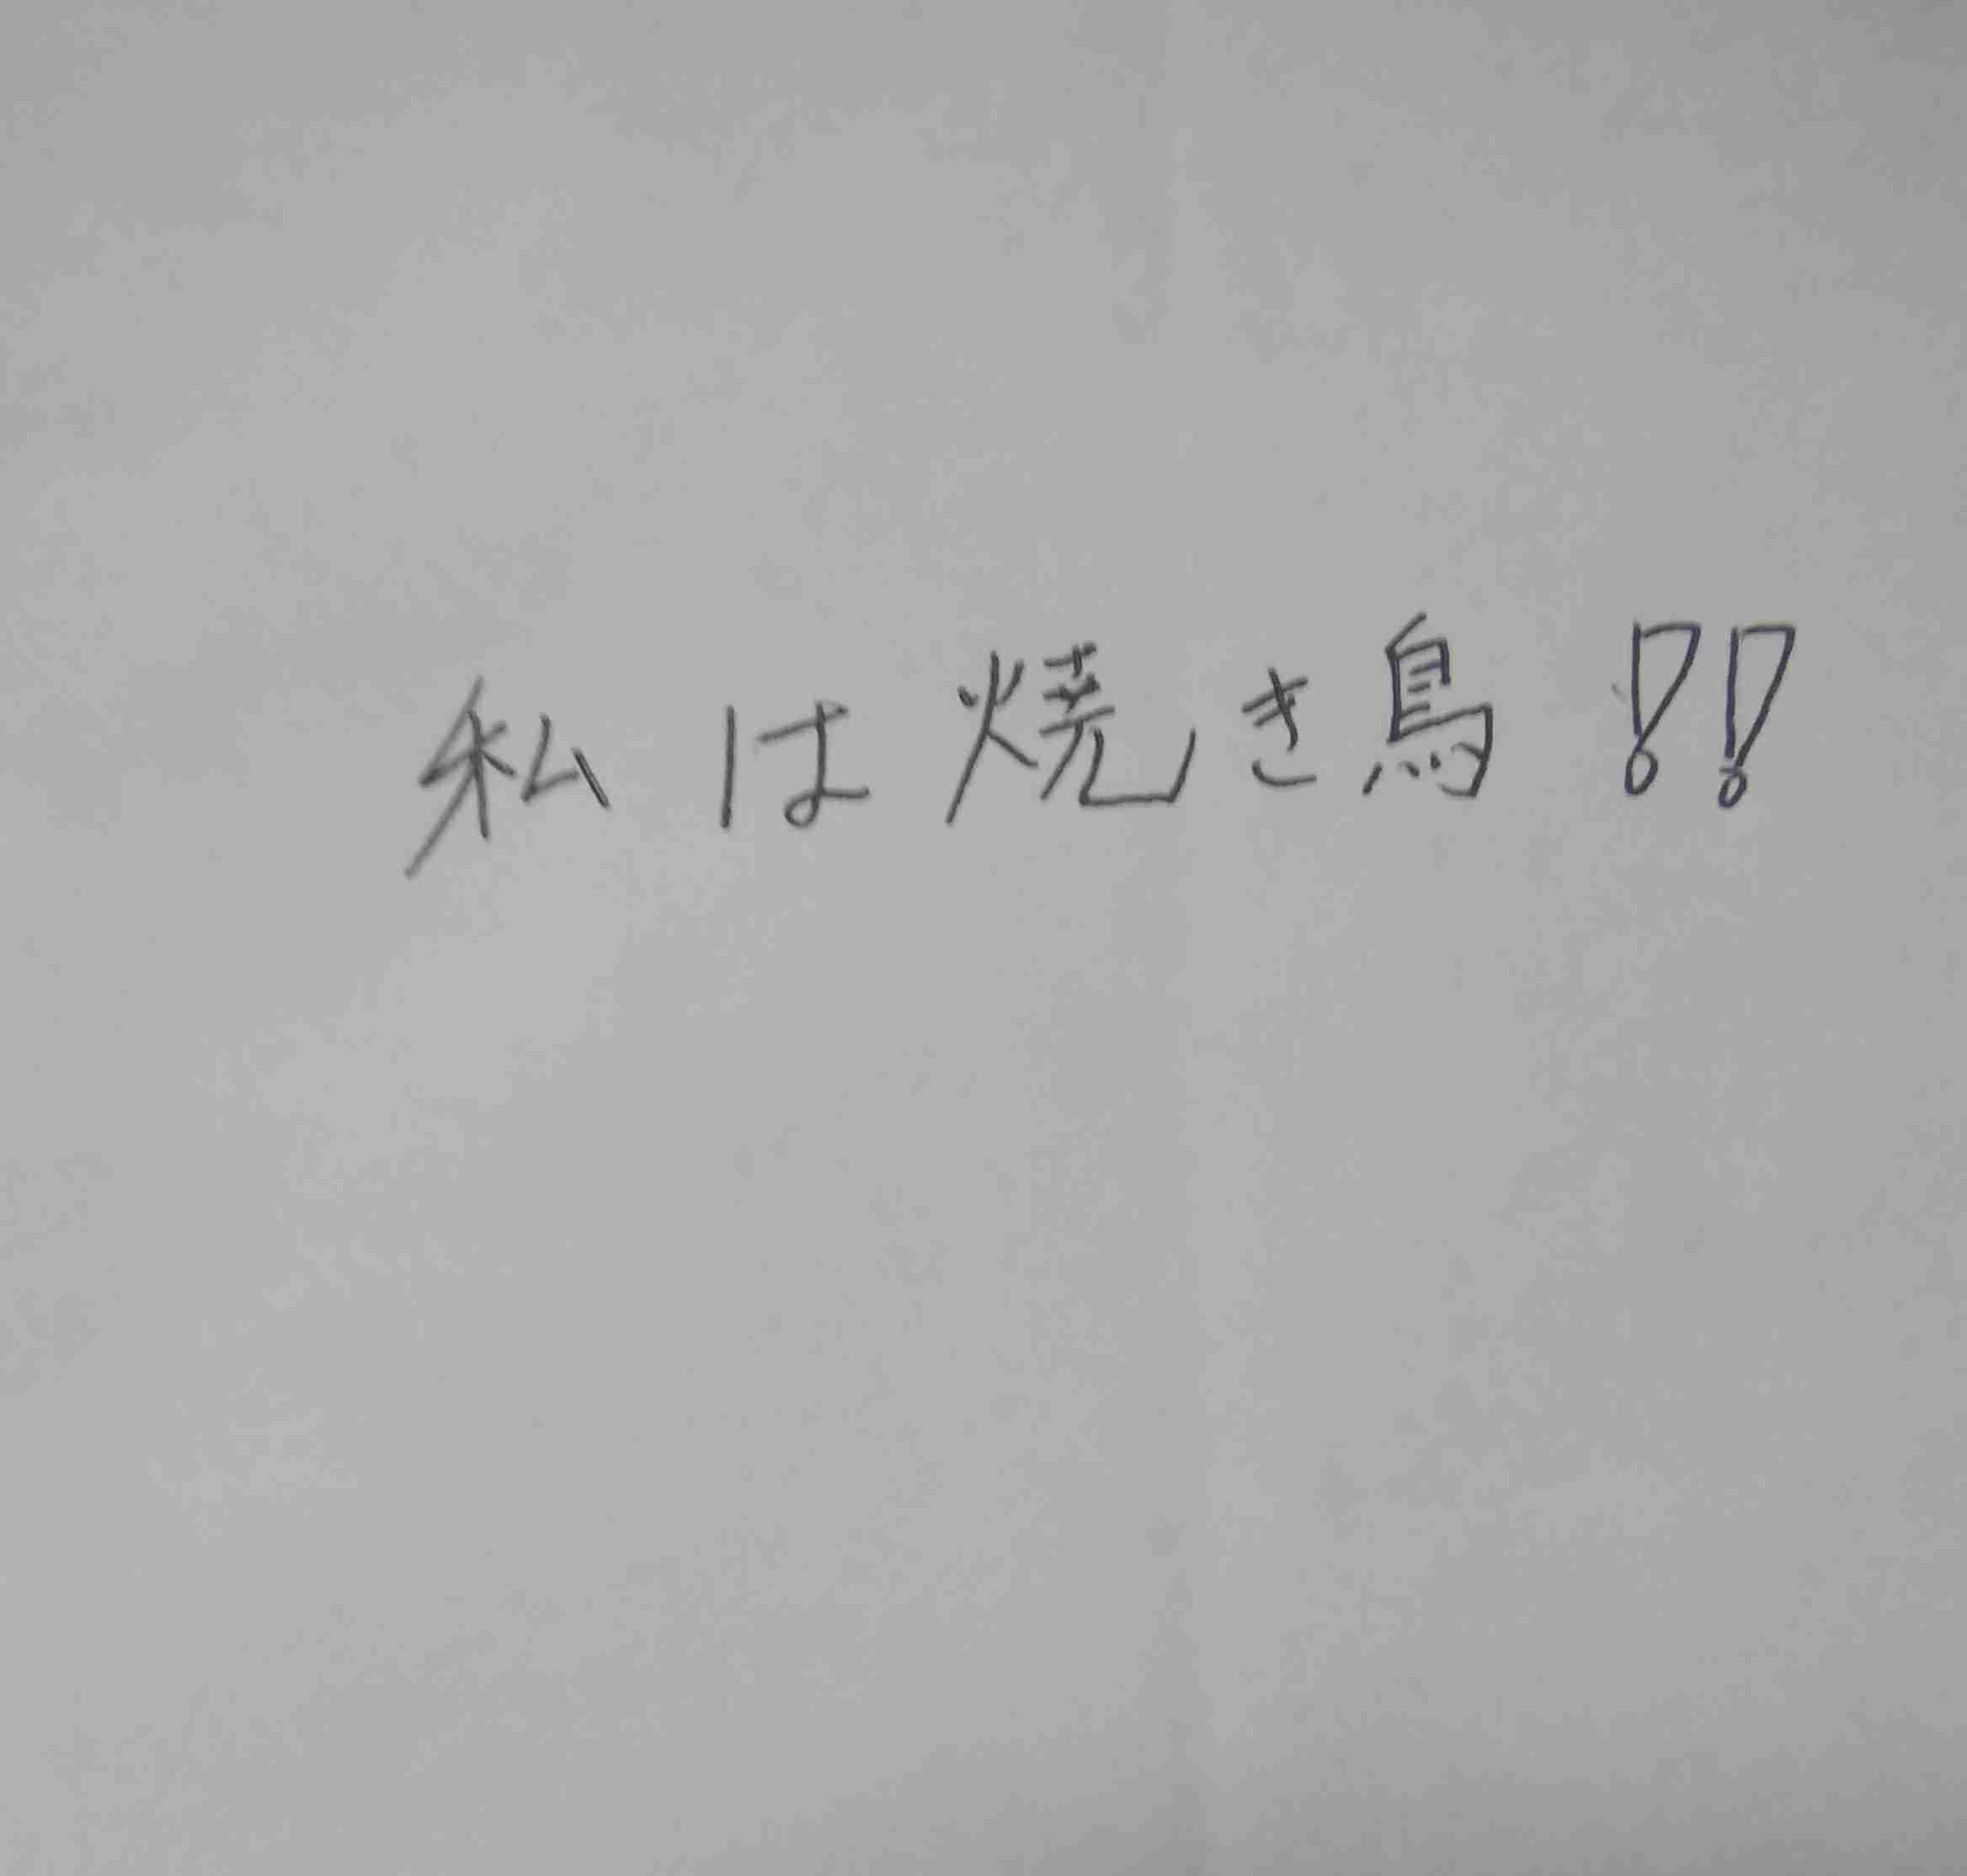 私は焼き鳥!!